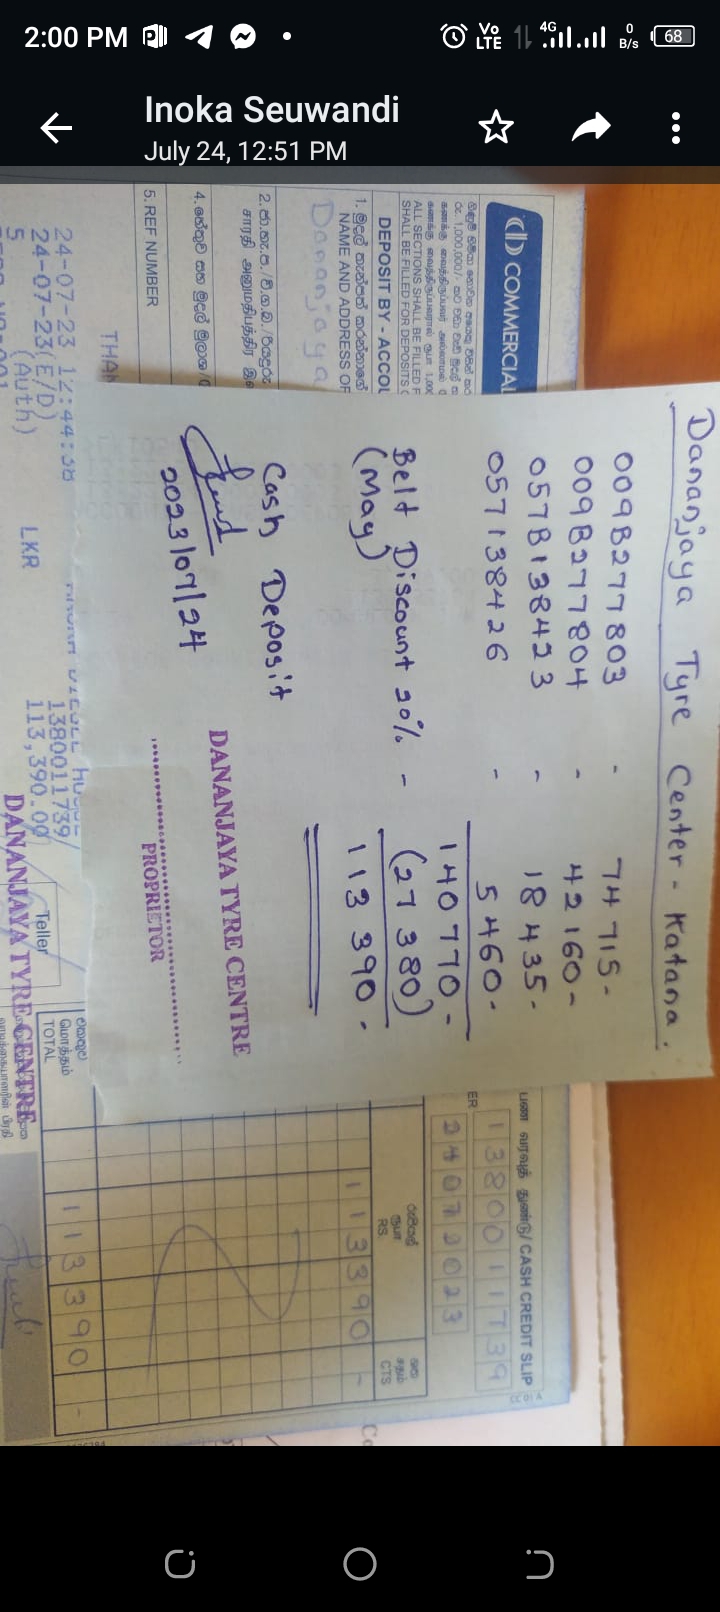 2:00 PM
Vo
LTE
4G
0
B/s
68
Inoka Seuwandi
July 24, 12:51 PM
Dananjaya Tyre Center - Katana.
009B277803 - 74 715-
009B277804 - 42 160-
057B138423 - 18 435-
057138426 - 5 460-
140 770-
Belt Discount 20% - (27 380)
(May)
113 390.
Cash Deposit
2023/07/24
DANANJAYA TYRE CENTRE
PROPRIETOR
COMMERCIAL
ALL SECTIONS SHALL BE FILLED F
SHALL BE FILLED FOR DEPOSITS
DEPOSIT BY - ACCOU
NAME AND ADDRESS OF
Dananjaya
5. REF NUMBER
THAN
24-07-23 12:44:38
24-07-23(E/D) LKR
5 (Auth)
13800111739/
113,390.00
DANANJAYA TYRE CENTRE
Teller
CASH CREDIT SLIP
CC 01 A
13800111739
ER
24072023
රුපියල්
ரூபா
RS
ශත
சதம்
CTS
113390 -
එකතුව
மொத்தம்
TOTAL
113390 -